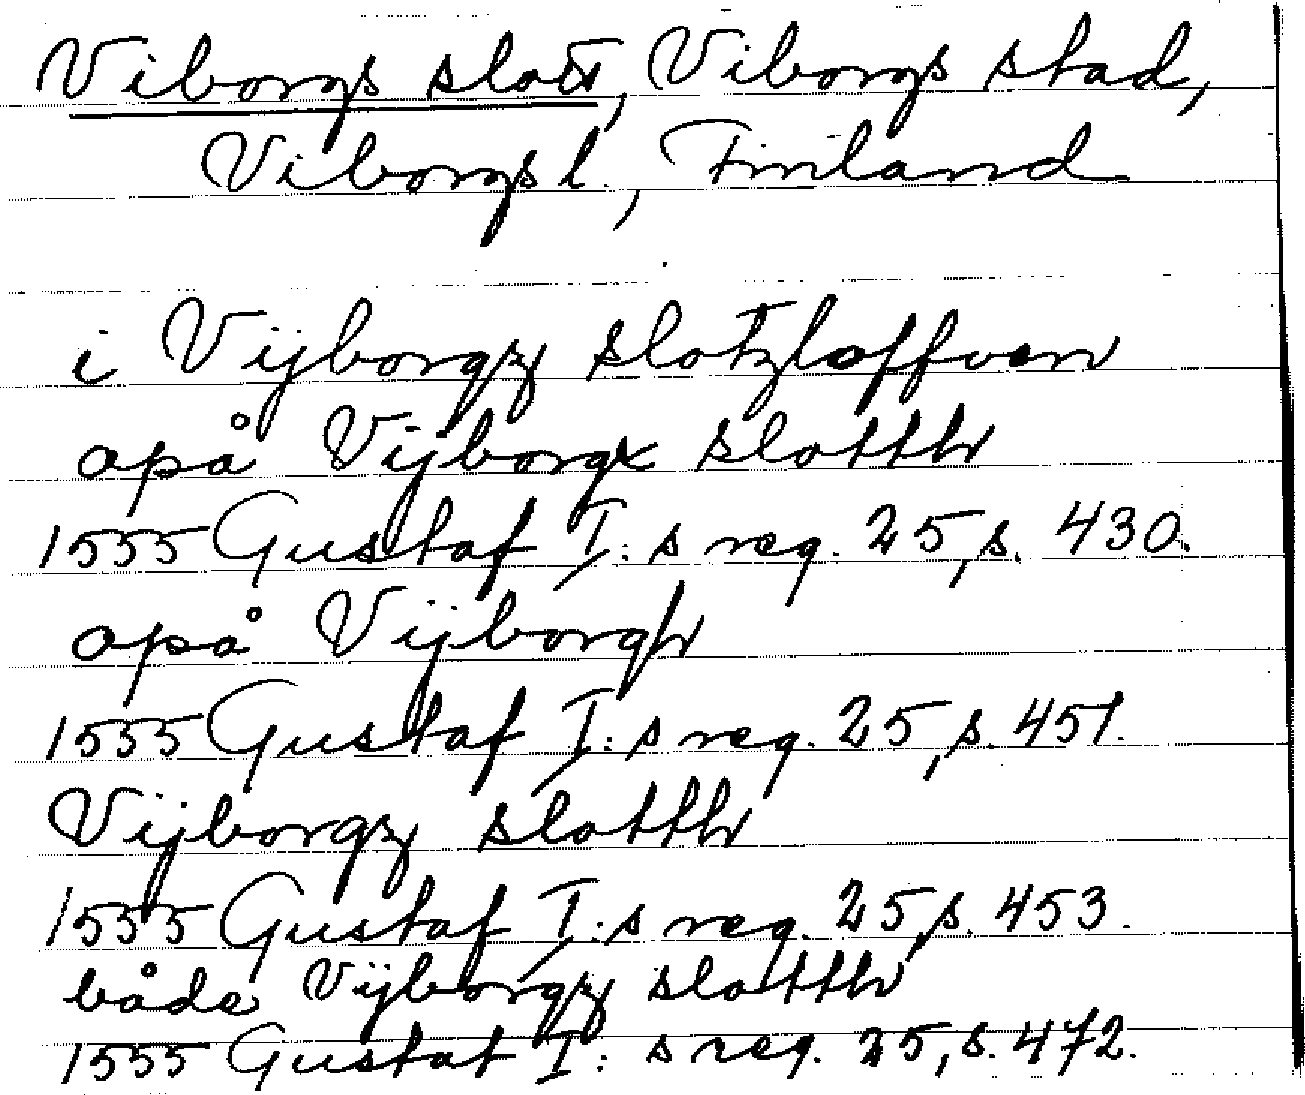 Viborgs slott, Viborgs stad,
Viborgs l., Finland
i Vijborgz slotzloffven
opå Vijborgx slotth
1555 Gustaf I:s reg. 25, s. 430.
opå Vijborgh
1555 Gustaf I:s reg. 25, s. 451.
Vijborgz slotth
1555 Gustaf I:s reg. 25, s. 453.
både Vijborgz slotth
1555 Gustaf I:s reg. 25, s. 472.